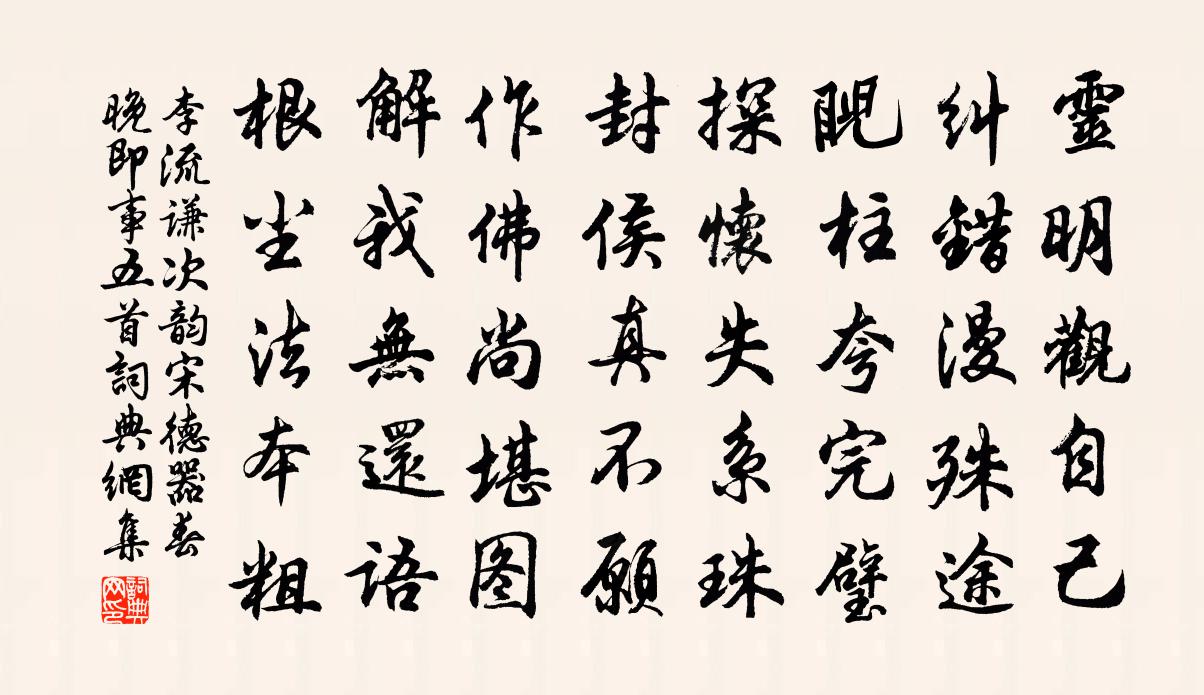 靈明觀自己
糾錯漫殊途
睨柱夸完璧
探懷失系珠
封侯真不願
作佛尚堪图
解我無還語
根尘法本粗
李流谦次韵宋德器春
晚即事五首詞典網集
詞典网印